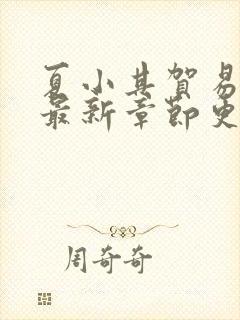 夏小其賀易
最新章節更
周奇奇